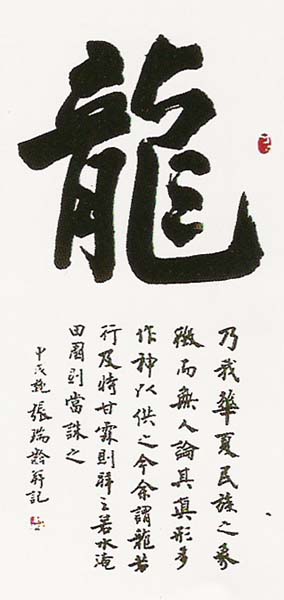 龍
乃我華夏民族之象
徵而無人論其眞形多
作神以供之今余謂龍若
行及時甘霖則拜之若水淹
田園則當誅之
甲戌 張瑞齡并記